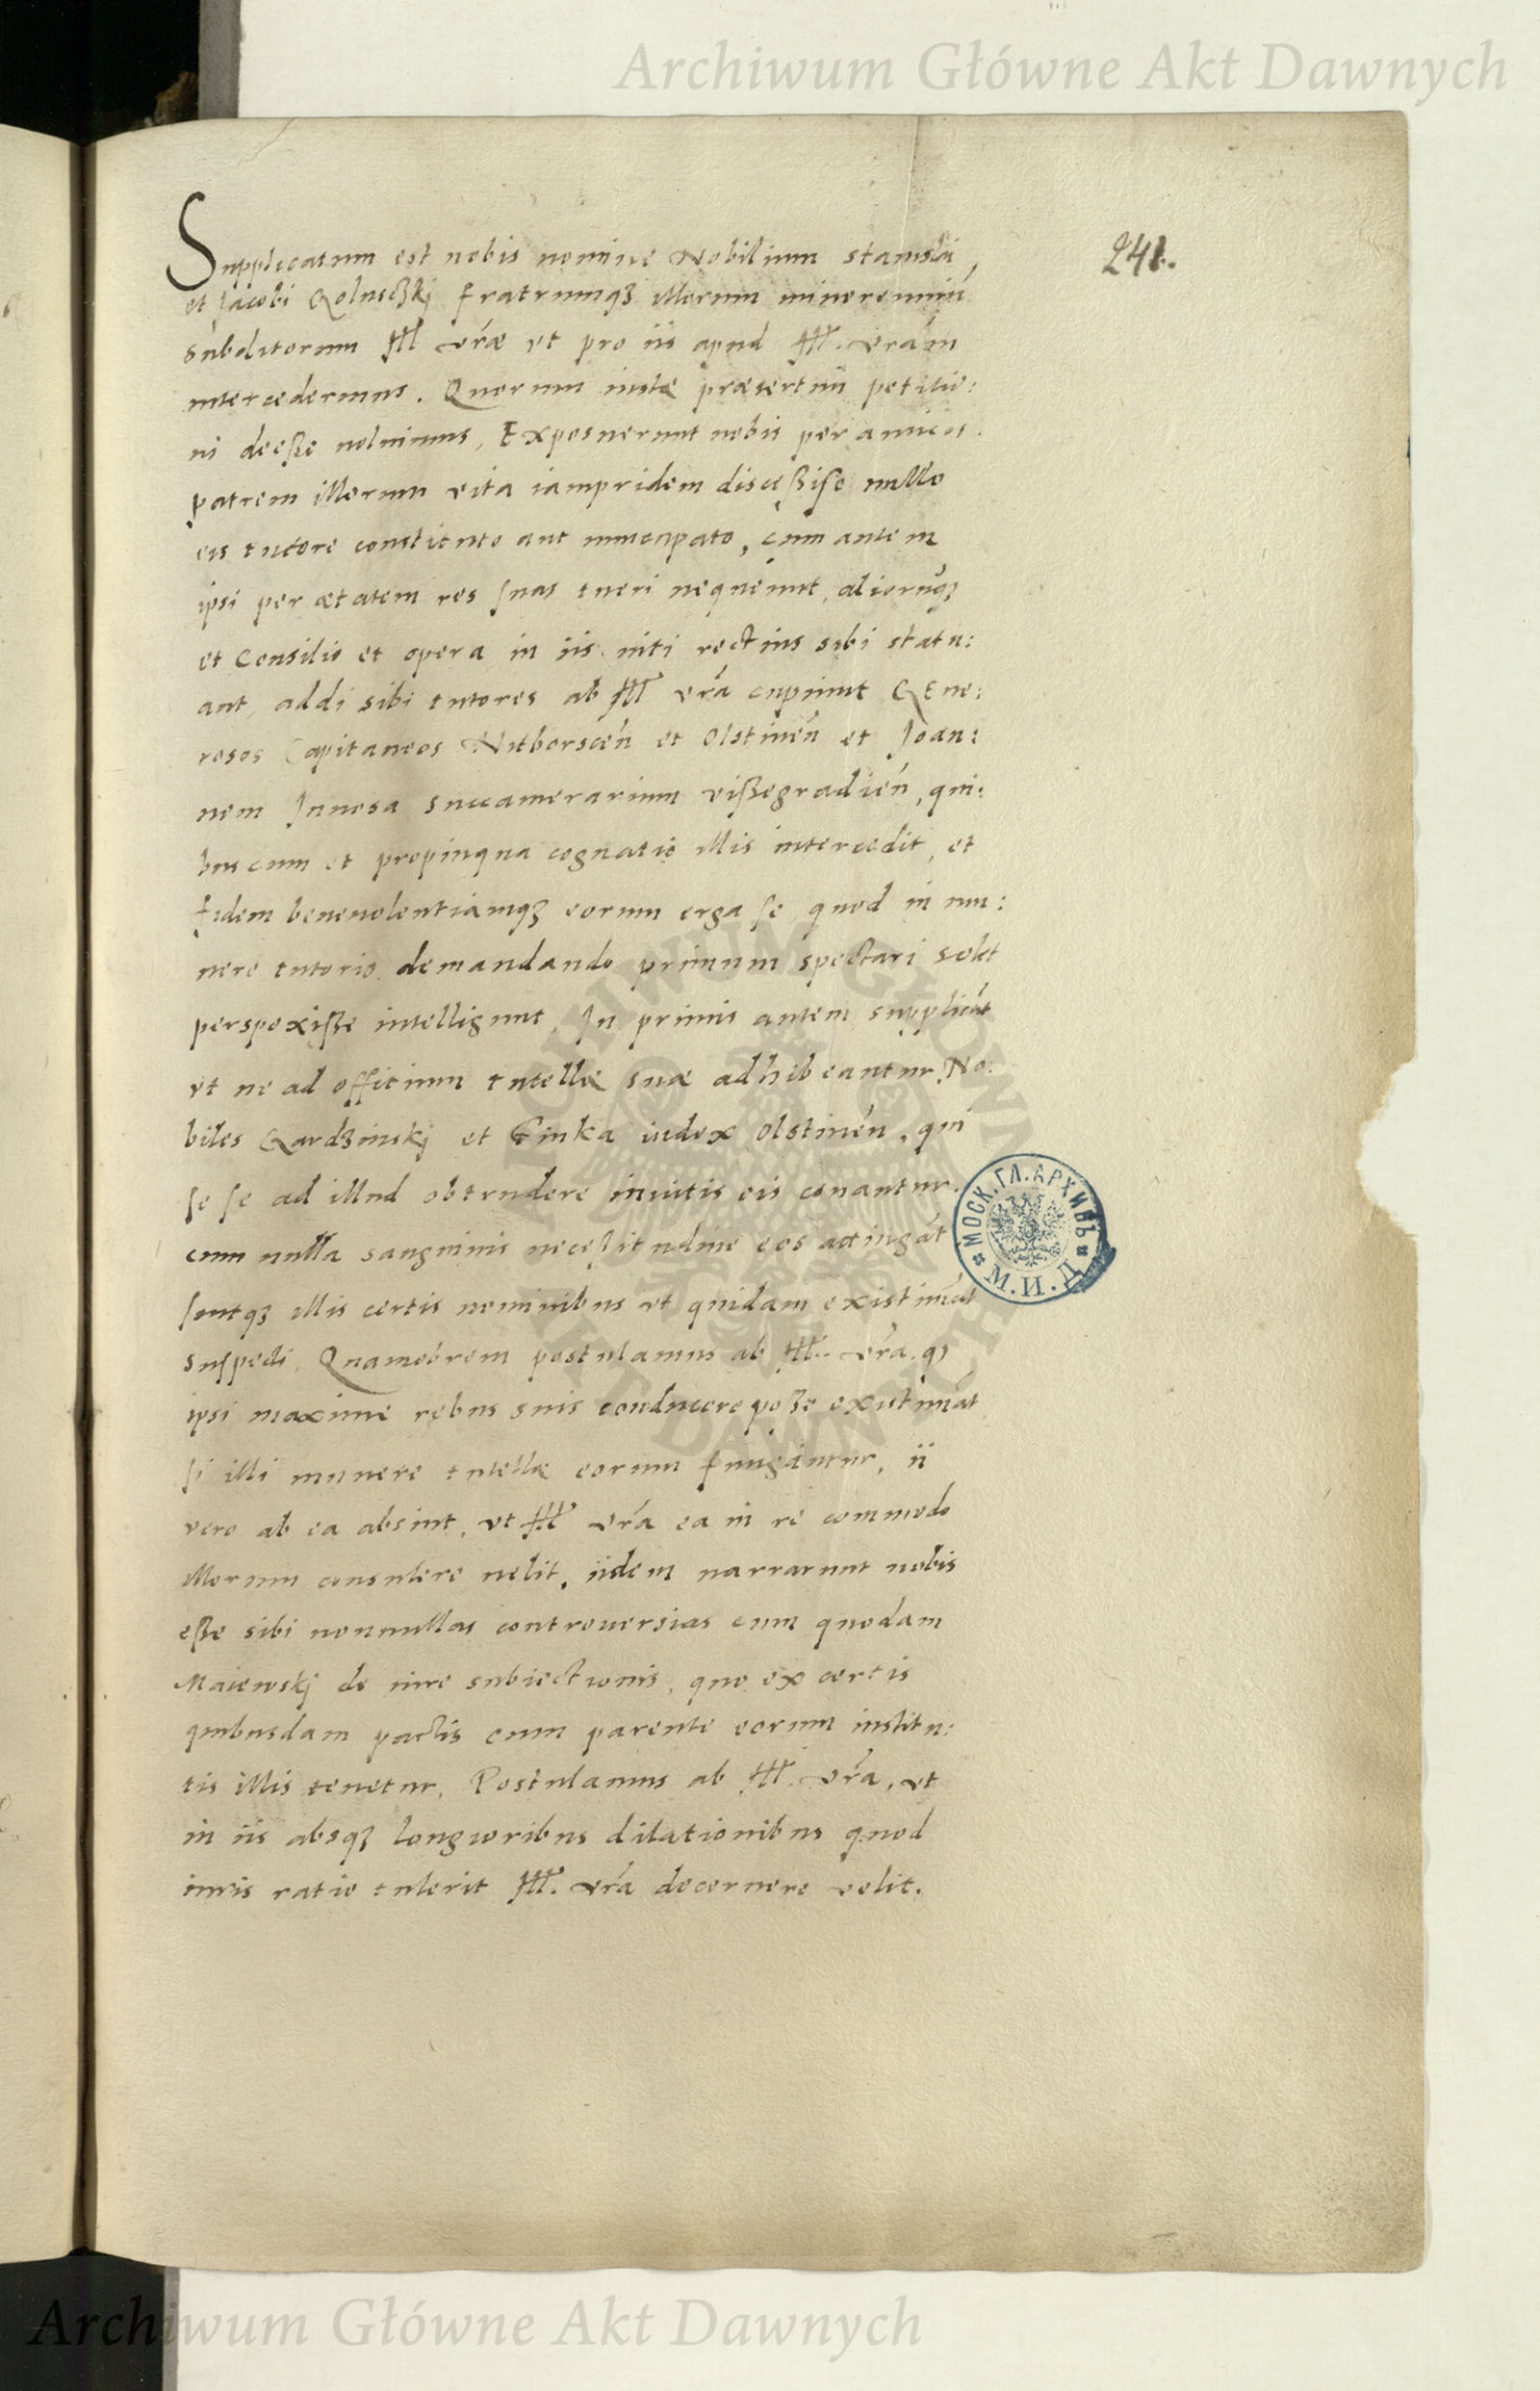 Archiwum Główne Akt Dawnych
241.
Supplicatum est nobis nomine Nobilium Stanislai
et Jacobi Goluchskj fratrumqꝫ illorum minorennium
subditorum Ill vrãe vt pro iis apud Ill. vrãm
intercederemus. Quorum iustæ præsertim petitio:
ni deeße noluimus, Exposuerunt nobis per amicos.
patrem illorum vita iampridem disceßiße nullo
eis tutore constituto aut nuncupato, cum autem
ipsi per ætatem res suas tueri nequeunt, aliorũqꝫ
et Consilio et opera in iis niti rectius sibi statu:
ant, addi sibi tutores ab Ill vrã cupiunt Gene:
rosos Capitaneos Nitborscen̄ et Olstinen̄ et Joan:
nem Jnuosa succamerarium vißegradien̄, qui:
bus cum et propinqua cognatio illis intercedit, et
fidem beneuolentiamqꝫ eorum erga se quod in mu:
nere tutorio demandando primum spectari solet
perspexiße intelligunt, In primis autem supplicãt
vt ne ad officium tutellæ suæ adhibeantur No:
biles Gardzinskj et Ginka iudex Olstinen̄, qui
se se ad illud obtrudere inuitis eis conantur.
cum nulla sanguinis neceßitudine eos attingãt
sentqꝫ illis certis nominibus vt quidam existimãt
suspecti. Quamobrem postulamus ab Ill. vrã. qꝫ
ipsi maxime rebus suis conducere poße existimãt
si illi munere tutellæ eorum fungãntur, ii
vero ab ea absint, vt Ill vrã ea in re commodo
illorum consulere uelit. iidem narrarunt nobis
eße sibi nonnullas controuersias cum quodam
Maiewskj de iure subiectionis, quo ex certis
quibusdam pactis cum parente eorum institu:
tis illis tenetur, Postulamus ab Ill. vrã, vt
in iis absqꝫ longioribus dilationibus quod
iuris ratio tulerit Ill. vrã decernere velit.
МОСК. ГЛ. АРХИВЪ
М. И. Д.
ARCHIWUM GŁÓWNE
AKT DAWNYCH
Archiwum Główne Akt Dawnych